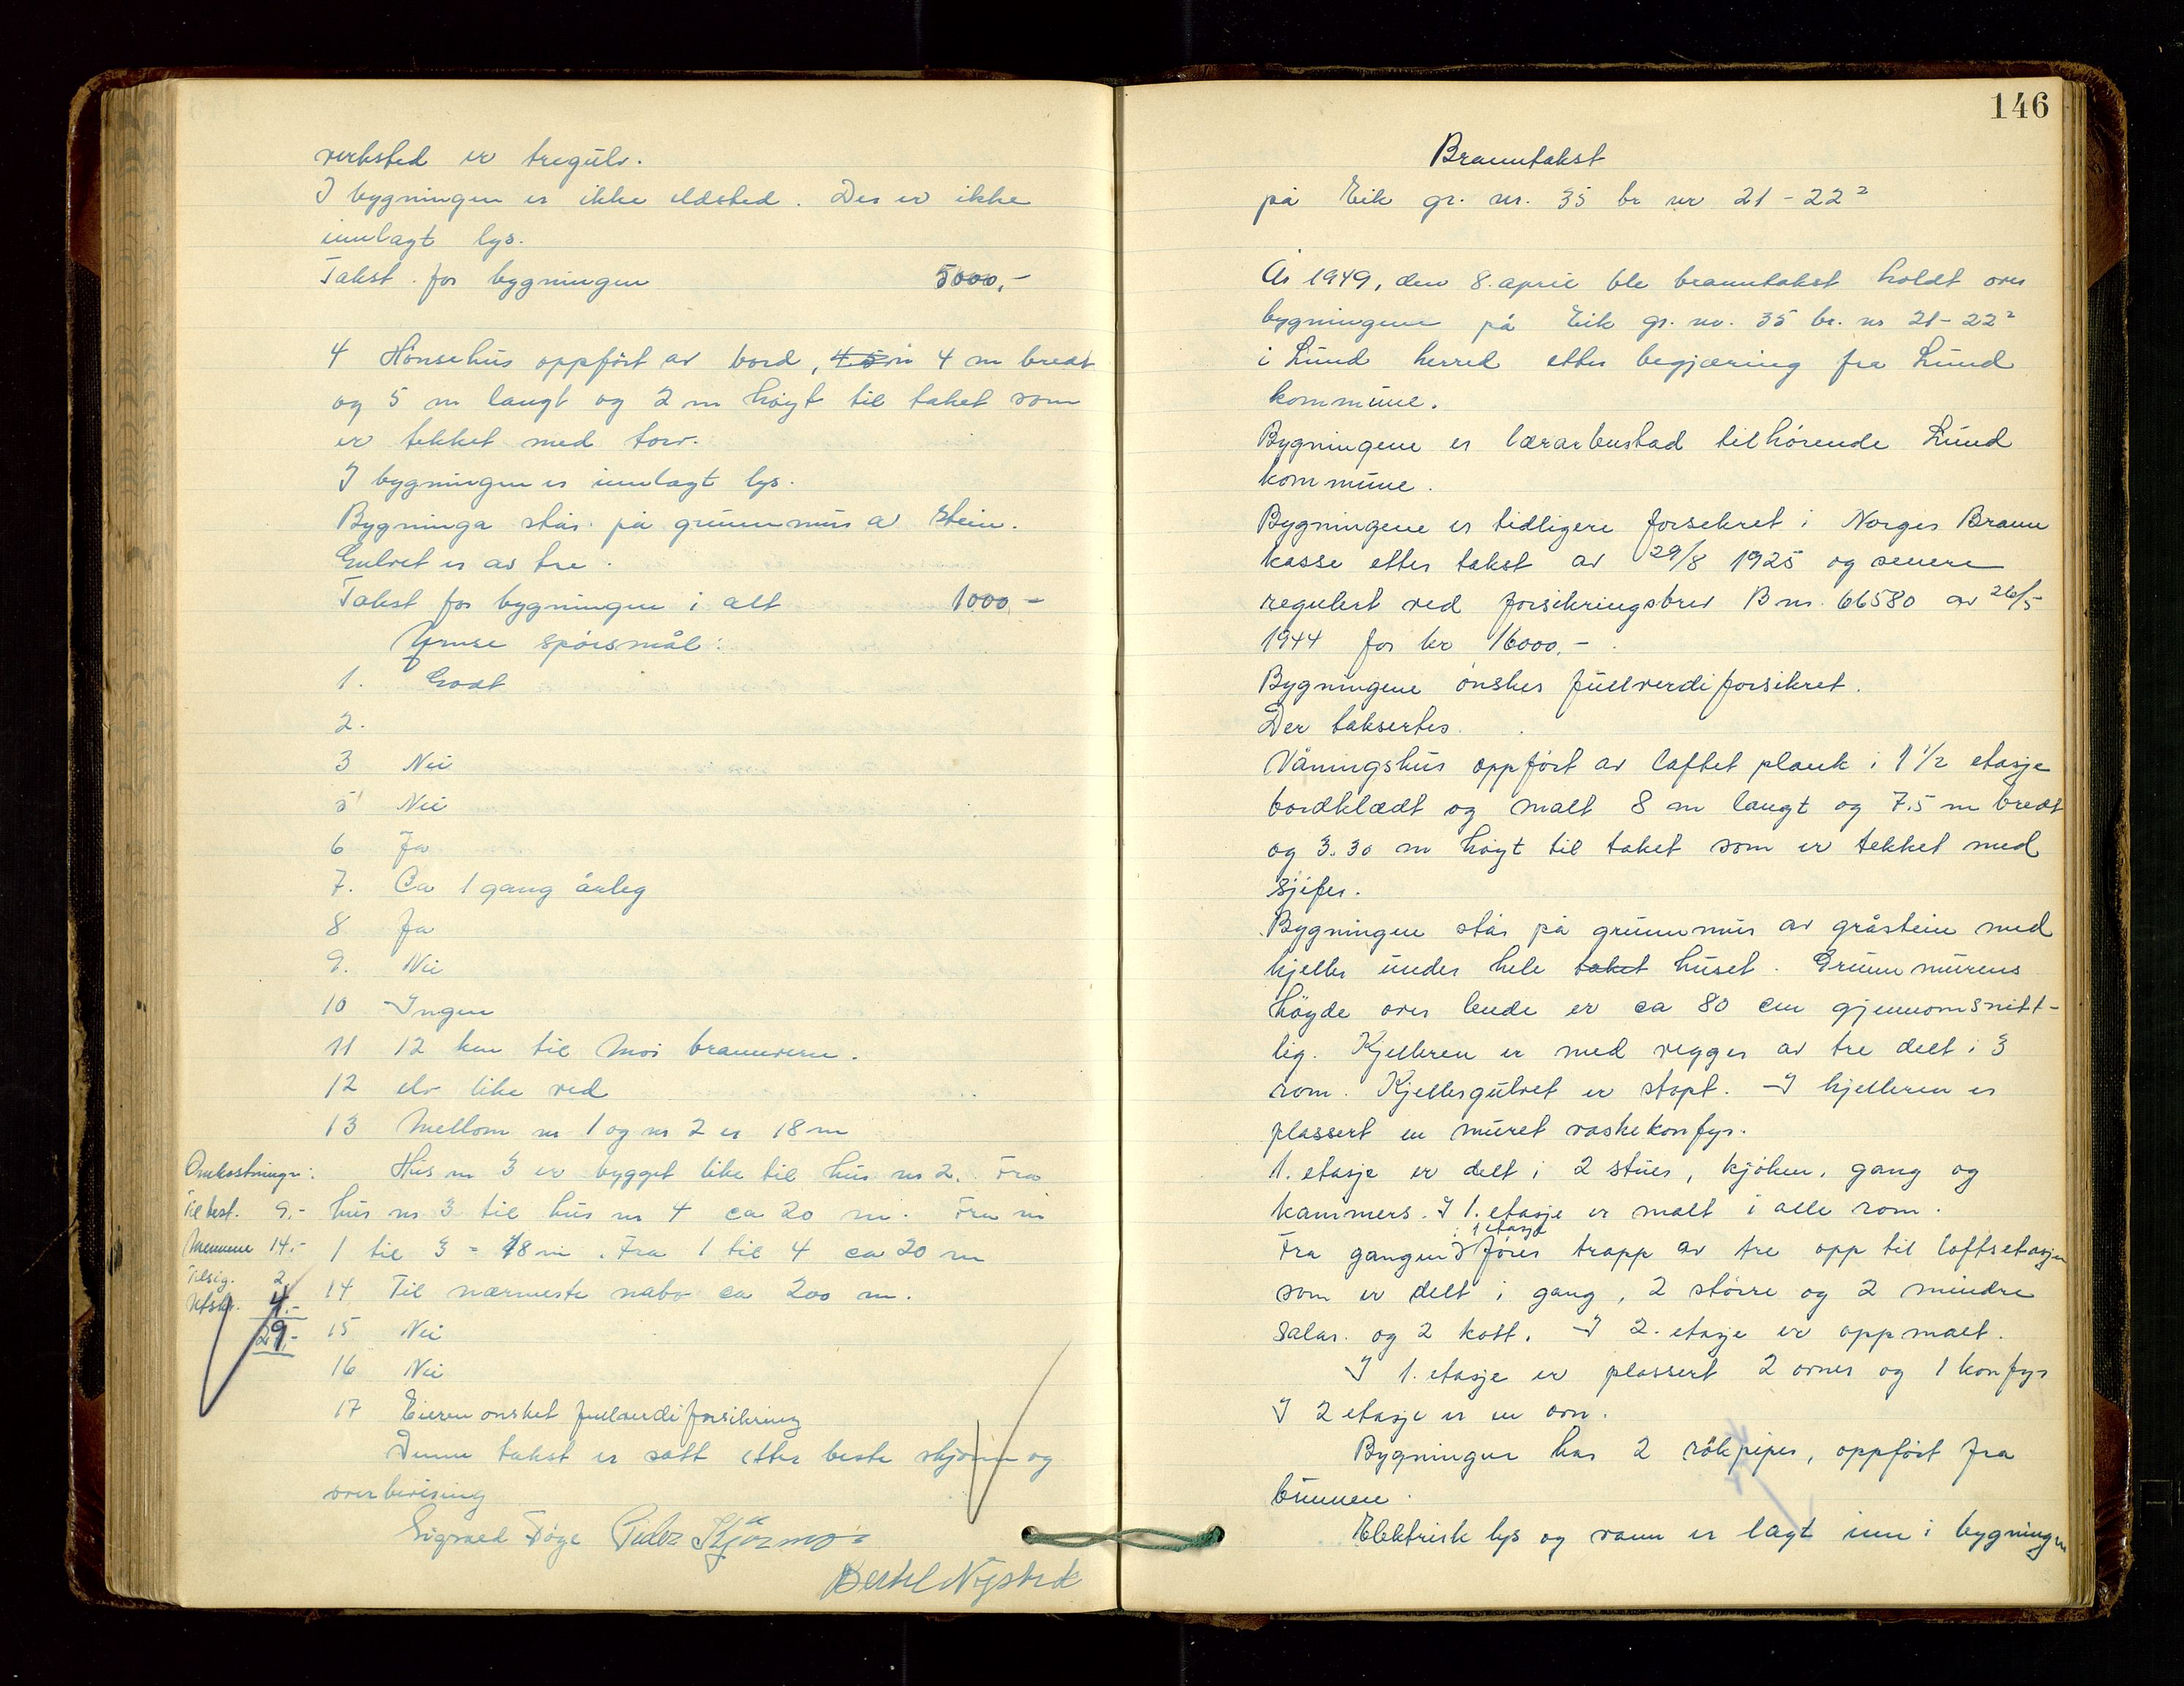 verksted er tregulv.
I bygningen er ikke ildsted. Der er ikke
innlagt lys.
Takst for bygningen 5000,-
4 Hönsehus oppfört av bord, 4 m bredt
og 5 m langt og 2 m höyt til taket som
er tekket med torv.
I bygningen er innlagt lys.
Bygninga står på grunnmur a stein.
Gulvet er av tre.
Takst for bygningen i alt 1000 -
Ymse spörsmål:
1. Godt
2.
3 Nei
5 Nei
6 Ja
7. Ca 1 gang årleg
8 Ja
9. Nei
10 Ingen
11 12 km til Moi brannvern.
12 elv like ved
13 Mellom nr 1 og nr 2 er 18 m
Omkostninger: Hus nr 3 er bygget like til hus nr 2. Fra
9,- hus nr 3 til hus nr 4 ca 20 m. Fra nr
Mennene 14.- 1 til 3 = 18 m. Fra 1 til 4 ca 20 m
Tilsig. 2,
Utskr. 4.- 14 Til nærmeste nabo ca 200 m.
29,- 15 Nei
16 Nei
17 Eieren onsket fullverdiforsikring
Denne takst er satt etter beste skjönn og
overbevisning
Sigvald Peder Kjörmo
Bertel Nystad
146
Branntakst
på Eik gr. nr. 35 br nr 21 - 22²
År 1949, den 8. april ble branntakst holdt over
bygningene på Eik gr. nr. 35 br. nr 21 - 22²
i Lund herred etter begjæring fra Lund
kommune.
Bygningene er lærarbustad tilhörende Lund
kommune.
Bygningene er tidligere forsekret i Norges Brann
kasse etter takst av 29/8 1925 og senere
regulert ved forsikringsbrev B nr. 66580 av 26/5
1944 for kr 16000.-
Bygningene önskes fullverdiforsikret.
Der taksertes.
Våningshus oppfört av laftet plank i 1 1/2 etasje
bordklædt og malt 8 m langt og 7.5 m bredt
og 3.30 m höyt til taket som er tekket med
sjifer.
Bygningen står på grunnmur av gråstein med
kjeller under hele taket huset. Grunnmurens
höyde over lende er ca 80 cm gjennomsnitt-
lig. Kjelleren er med vegger av tre delt i 3
rom. Kjellergulvet er stöpt. I kjelleren er
plassert en muret vaskekonfyr.
1. etasje er delt i 2 stuer, kjöken, gang og
kammers. I 1. etasje er malt i alle rom.
i 1 etasje
Fra gangen förer trapp av tre opp til loftsetasjen
som er delt i gang, 2 större og 2 mindre
salar. og 2 kott. I 2. etasje er oppmalt.
I 1. etasje er plassert 2 ovner og 1 konfyr
I 2 etasje er en ovn.
Bygningen har 2 rökpiper, oppfört fra
bunnen.
Elektrisk lys og vann er lagt inn i bygningen